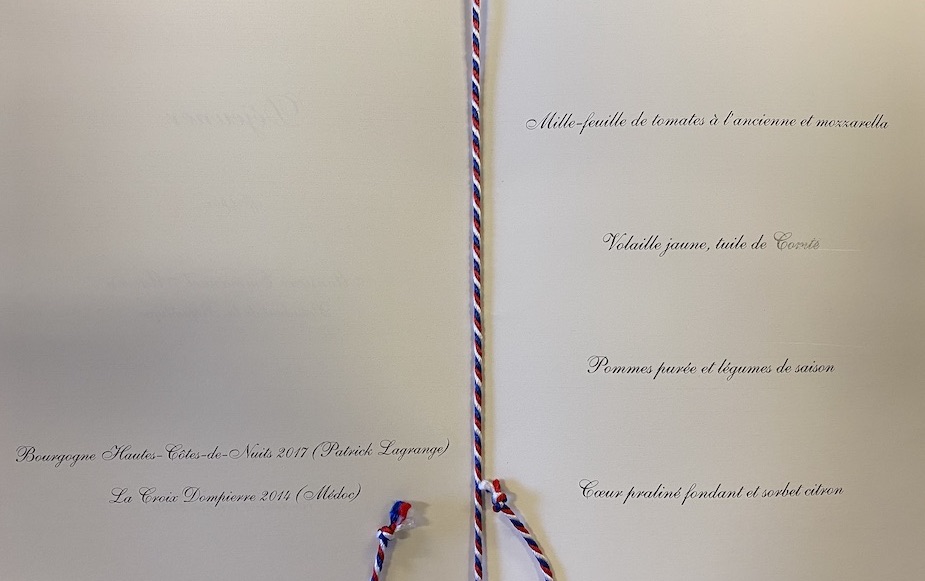 Bourgogne Hautes-Côtes-de-Nuits 2017 (Patrick Lagrange)
La Croix Dompierre 2014 (Médoc)
Mille-feuille de tomates à l'ancienne et mozzarella
Volaille jaune, tuile de Comté
Pommes purée et légumes de saison
Cœur praliné fondant et sorbet citron